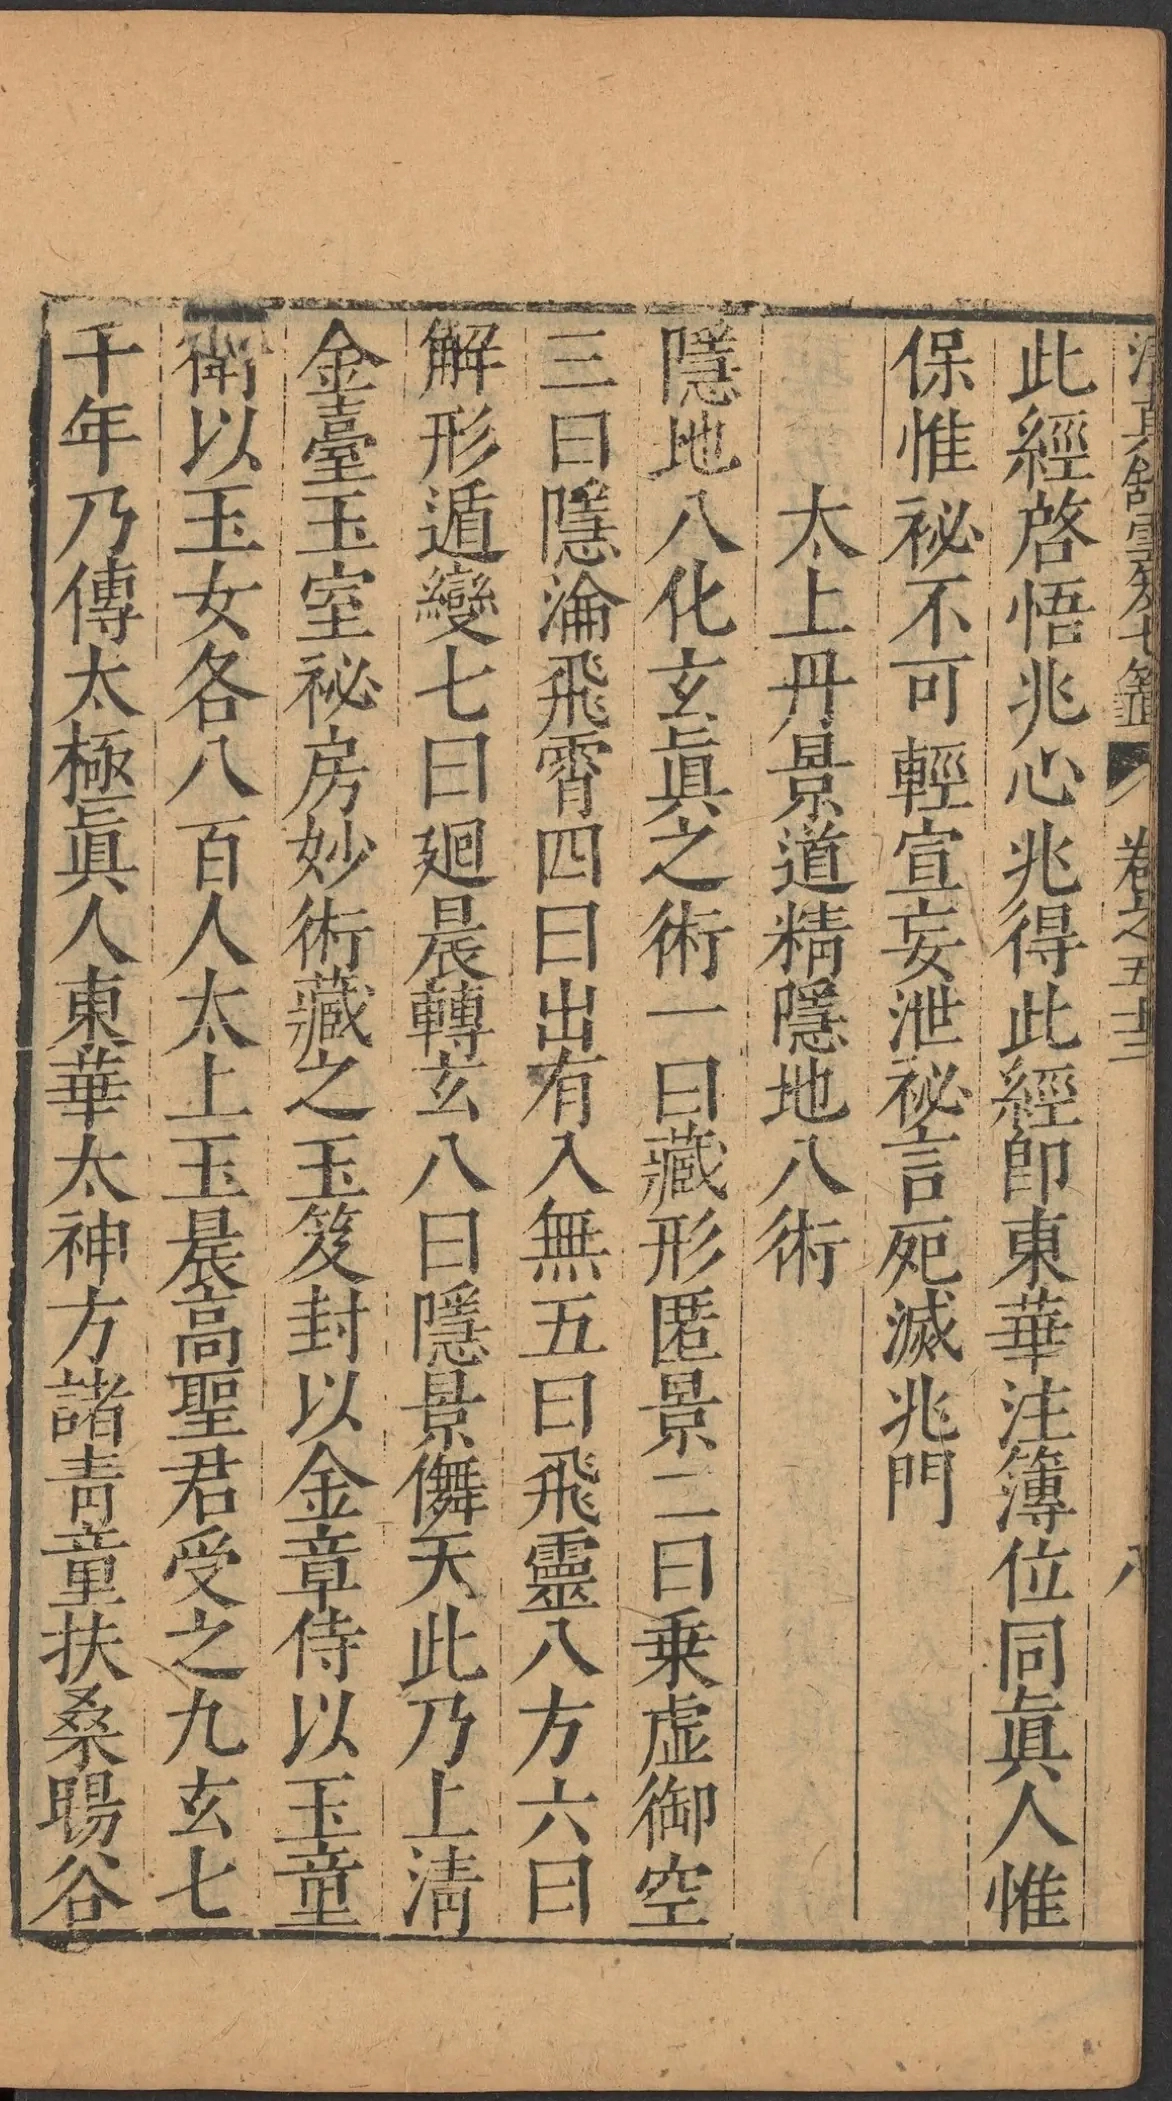 眞館雲笈七籤 卷之五十三 八
此經啓悟兆心兆得此經卽東華注簿位同眞人惟
保惟祕不可輕宣妄泄祕言死滅兆門
太上丹景道精隱地八術
隱地八化玄眞之術一曰藏形匿景二曰乗虛御空
三曰隱淪飛霄四曰出有入無五曰飛靈八方六曰
解形遁變七曰廻晨轉玄八曰隱景儛天此乃上淸
金臺玉室祕房妙術藏之玉笈封以金章侍以玉童
衛以玉女各八百人太上玉晨高聖君受之九玄七
千年乃傳太極眞人東華太神方諸靑童扶桑暘谷